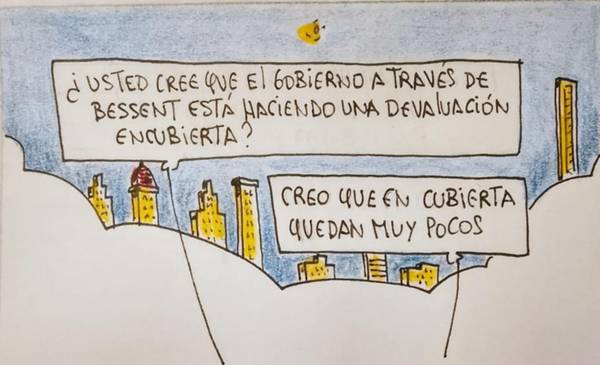 ¿USTED CREE QUE EL GOBIERNO A TRAVÉS DE
BESSENT ESTÁ HACIENDO UNA DEVALUACIÓN
ENCUBIERTA?
CREO QUE EN CUBIERTA
QUEDAN MUY POCOS